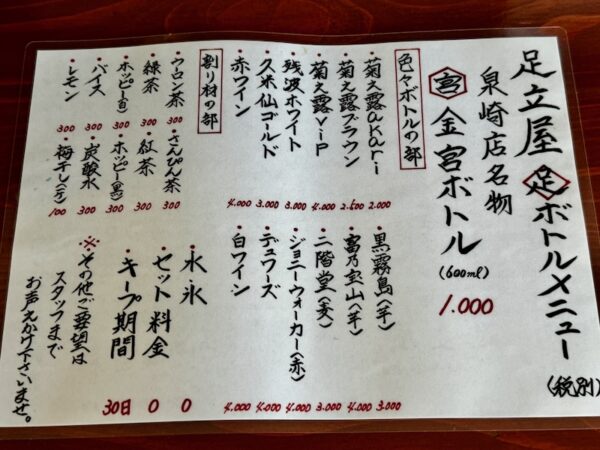 足立屋 足 ボトルメニュー (税別)
泉崎店名物
宮 金宮ボトル (600ml) 1.000
色々ボトルの部
・菊之露akari 2.000
・菊之露ブラウン 2.500
・菊之露VIP 4.000
・残波ホワイト 3.000
・久米仙ゴールド 3.000
・赤ワイン 4.000
・黒霧島(芋) 3.000
・富乃宝山(芋) 4.000
・二階堂(麦) 3.000
・ジョニーウォーカー(赤) 4.000
・デュワーズ 4.000
・白ワイン 4.000
割り材の部
・ウロン茶 300
・緑茶 300
・ホッピー(白) 300
・バイス 300
・レモン 300
・さんぴん茶 300
・紅茶 300
・ホッピー(黒) 300
・炭酸水 300
・梅干し(1ケ) 100
・水、氷 0
・セット料金 0
・キープ期間 30日
※その他ご要望は
スタッフまで
お声えかけ下さいませ。